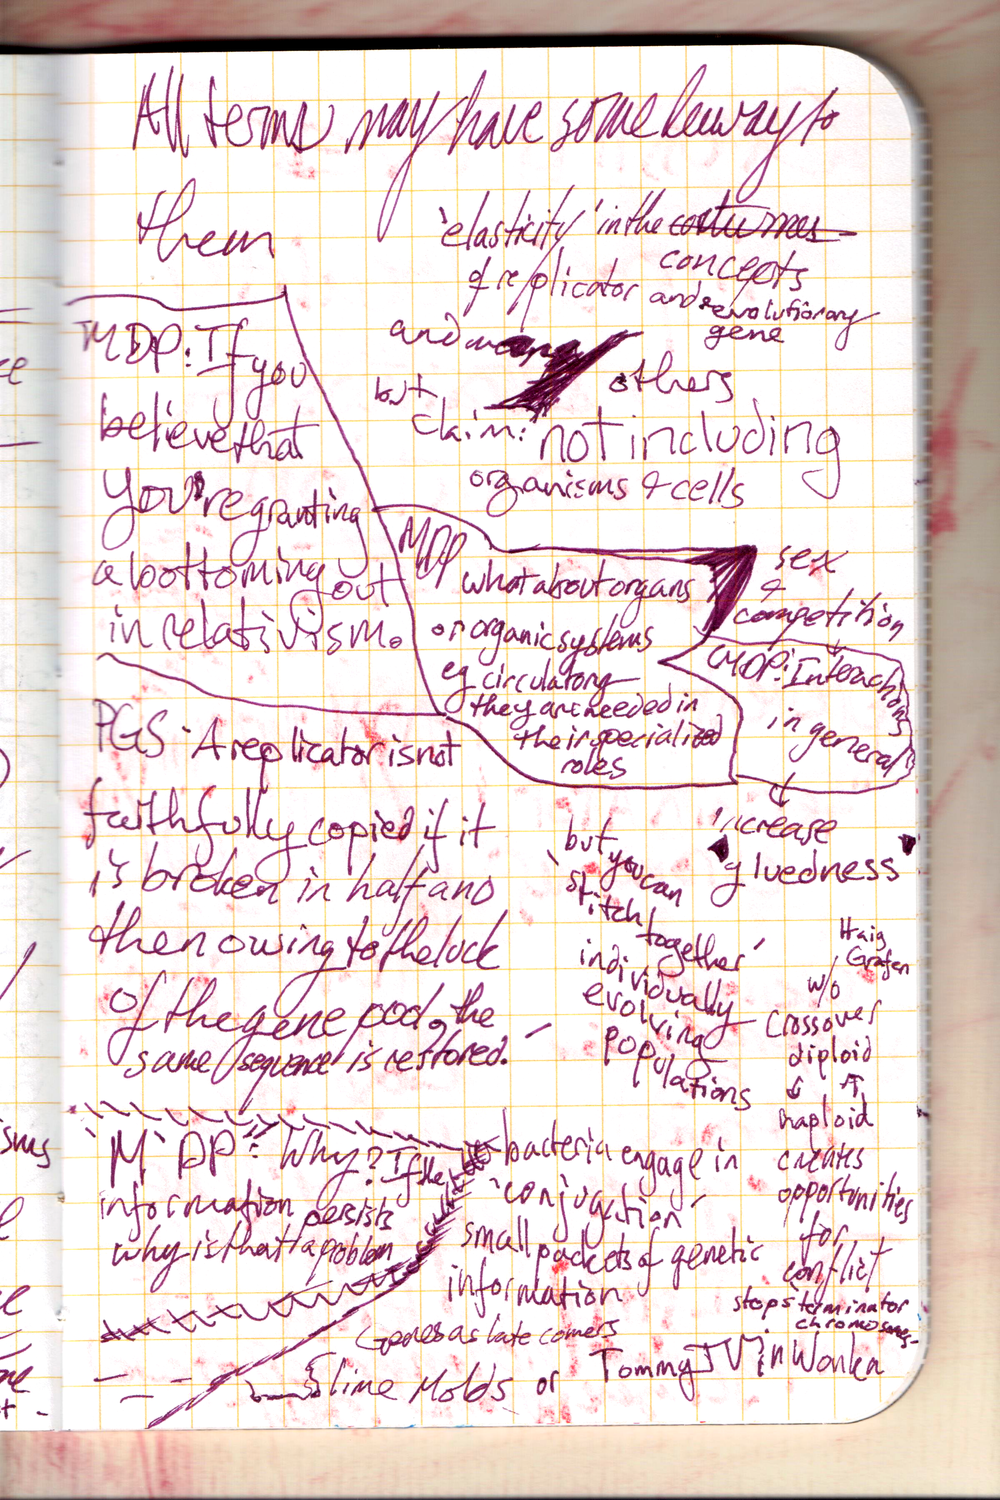 All terms may have some leeway to
them
'elasticity' in the costumes
concepts
of replicator and evolutionary
gene
and
others
but
claim: not including
organisms & cells
MDP: If you
believe that
you're granting
a bottoming out
in relativism.
MDP
what about organs
or organic systems
eg circulatory
they are needed in
their specialized
roles
sex
&
competition
MDP: Interactions
in general
increase
'gluedness'
PGS: A replicator is not
faithfully copied if it
is broken in half and
then owing to the luck
of the gene pool, the
same sequence is restored.
but
you can
'stitch
together'
individually
evolving
populations
Haig
Grafen
w/o
crossover
diploid
haploid
creates
opportunities
for
conflict
stops terminator
chromosomes
MDP: Why? If the
information persists
why is that a problem
bacteria engage in
'conjugation'
small packets of genetic
information
Genes as late comers
Slime Molds or Tommy TV in Wonka
isms